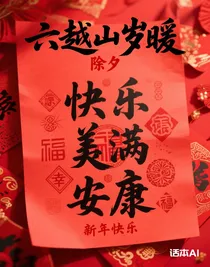 六越山岁暖
除夕
快乐
美满
安康
福
福
幸
新年快乐
话本AI